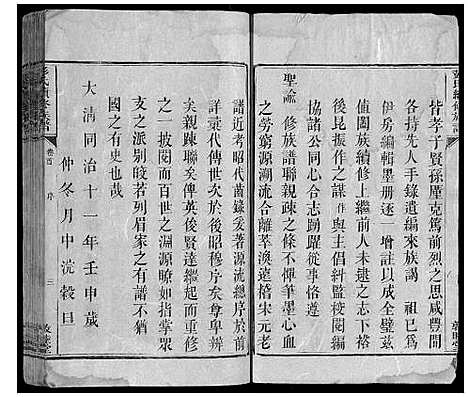 皆孝子賢孫厪克篤前烈之思咸豐間
各持先人手錄遺編來族謁 祖已爲
伊房編輯墨册逐一增註以成全璧茲
值闔族續修上繼前人未逮之志下裕
後昆振作之謀 作與主倡糾監校閱編
協諸公同心合志踴躍從事謹遵
聖諭 修族譜聯親疎之條不憚筆墨心血
之勞窮源溯流合離萃渙遠稽宋元老
譜近考昭代舊錄爰著源流總序於前
詳載代傳世次於後昭穆序矣尊卑辨
矣親疎聯矣俾英俊賢達繼起而重修
之一披閱而百世之淵源瞭如指掌眾
支之派別皎若列眉家之有譜不猶
國之有史也哉
大清同治十一年壬申歲
仲冬月中浣穀旦
彭氏續修族譜
卷首 序 三